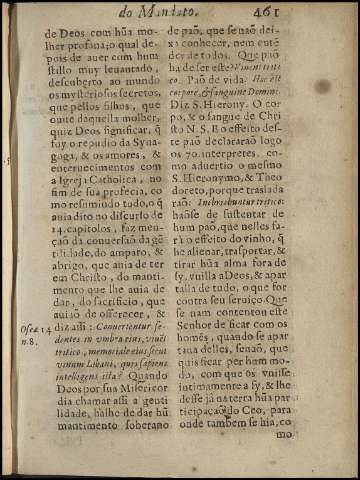 do Mandato. 461
de Deos com hũa mo-
lher profana, o qual de-
pois de auer com hum
stillo muy leuantado,
descuberto ao mundo
os mysteriosos secretos,
que pellos filhos, que
ouue daquella molher,
quiz Deos significar, q̃
foy o repudio da Syna-
goga, & os amores, &
enternecimentos com
a Igreja Catholica, no
fim de sua profecia, co
mo resumindo tudo, o q̃
auia dito no discurso de
14. capitolos, faz men-
ção da conuersão da gẽ
tilidade, do amparo, &
abrigo, que auia de ter
em Christo, do manti-
mento que lhe auia de
dar, do sacrificio, que
auião de offerecer, &
diz assi: Conuertentur se-
dentes in vmbra eius, viuẽt
tritico, memoriale eius sicut
vinum Libani, quis sapiens
intelligens ista? Quando
Deos por sua Misericor
dia chamar assi a genti
lidade, hàlhe de dar hũ
mantimento soberano
Oseæ 14
n. 8.
de paõ, que se naõ dei-
xa conhecer, nem entẽ
der de todos. Que paõ
ha de ser este? Viuent triti
co. Paõ de vida. Hoc est
corpore, & sanguine Domini:
Diz S. Hierony. O cor-
po, & o sangue de Chri
sto N. S. E o effeito des-
te paõ declararaõ logo
os 70. interpretes, co-
mo aduertio o mesmo
S. Hieronymo, & Theo
doreto, porque traslada
raõ: Inebriabuntur tritico:
haõse de sustentar de
hum paõ, que nelles fa-
rà o effeito do vinho, q̃
he alienar, trasportar, &
tirar hũa alma fora de
sy, vnilla a Deos, & apar
talla de tudo, o que for
contra seu seruiço. Que
se nam contentou este
Senhor de ficar com os
homẽs, quando se apar
taua delles, senaõ, que
quis ficar per hum mo-
do, com que os vnisse
intimamente a sy, & lhe
desse já na terra hũa par
ticipação do Ceo, para
onde tambem se hia, co
mo